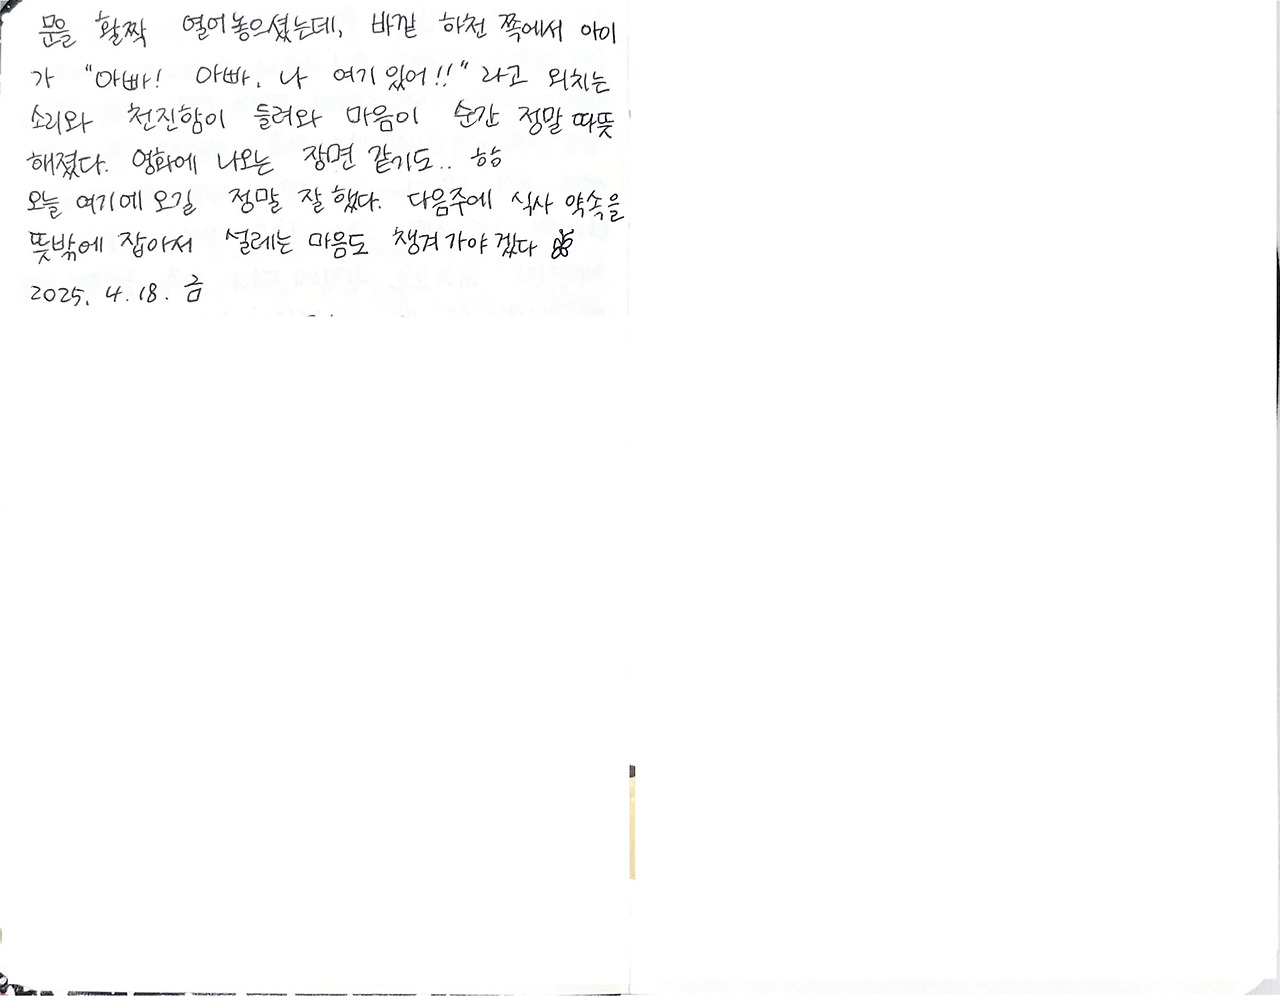 문을 활짝 열어놓으셨는데, 바깥 하천 쪽에서 아이
가 "아빠! 아빠, 나 여기 있어!!" 라고 외치는
소리와 천진함이 들려와 마음이 순간 정말 따뜻
해졌다. 영화에 나오는 장면 같기도.. ㅎㅎ
오늘 여기에 오길 정말 잘 했다. 다음주에 식사 약속을
뜻밖에 잡아서 설레는 마음도 챙겨가야겠다
2025. 4. 18. 금